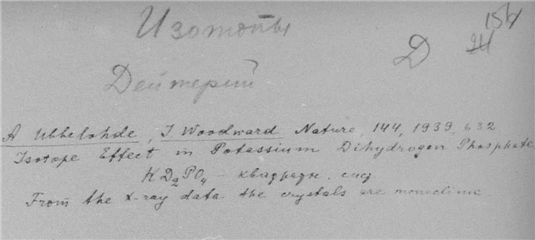 Изотопы
156
Д
Дейтерий
A Ubbelohde, I Woodward Nature, 144, 1939, 632
Isotope Effect in Potassium Dihydrogen Phosphate
KD₂PO₄ - квадратн.
From the x-ray data the crystals are monoclinic